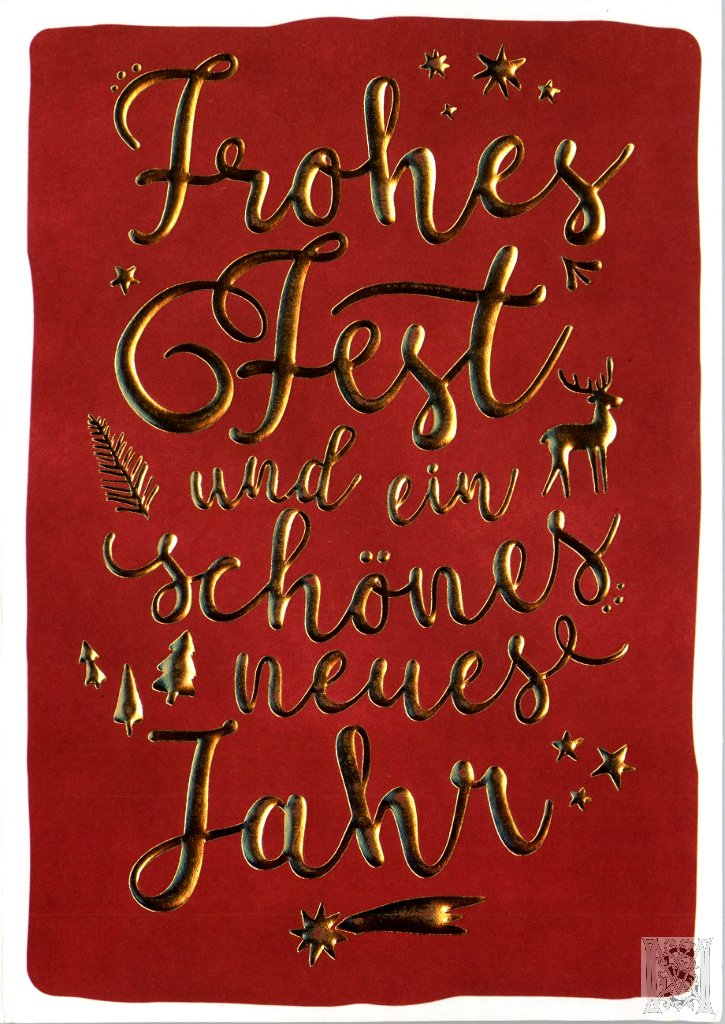 Frohes
Fest
und ein
schönes
neues
Jahr